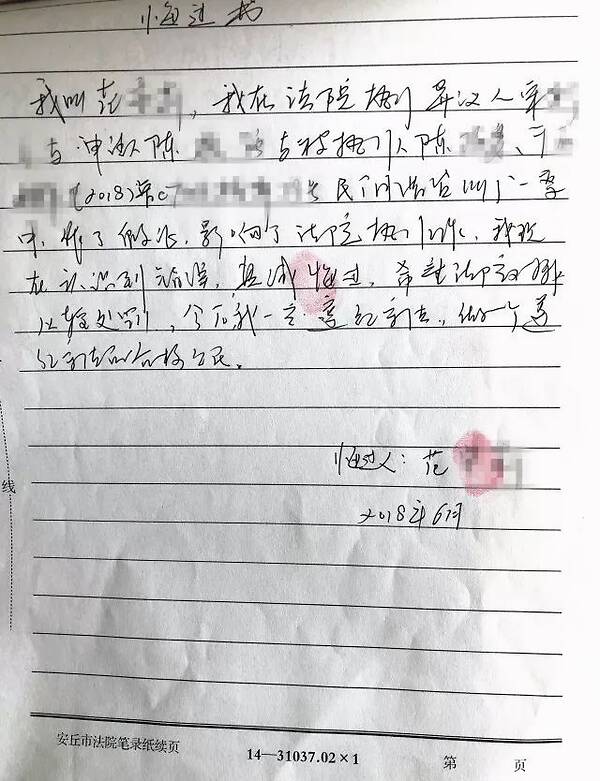 悔过书
我叫范，我在法院执行异议人宋
与申请人陈 与被执行人陈
(2018)第 号民间借贷纠纷一案
中，作了假证，影响了法院执行工作，我现
在认识到错误，真诚悔过，希望法院
从轻处罚，今后我一定遵纪守法，做一个遵
纪守法的合格公民。
悔过人：范
2018年6月
线
安丘市法院笔录纸续页
14—31037.02×1
第 页